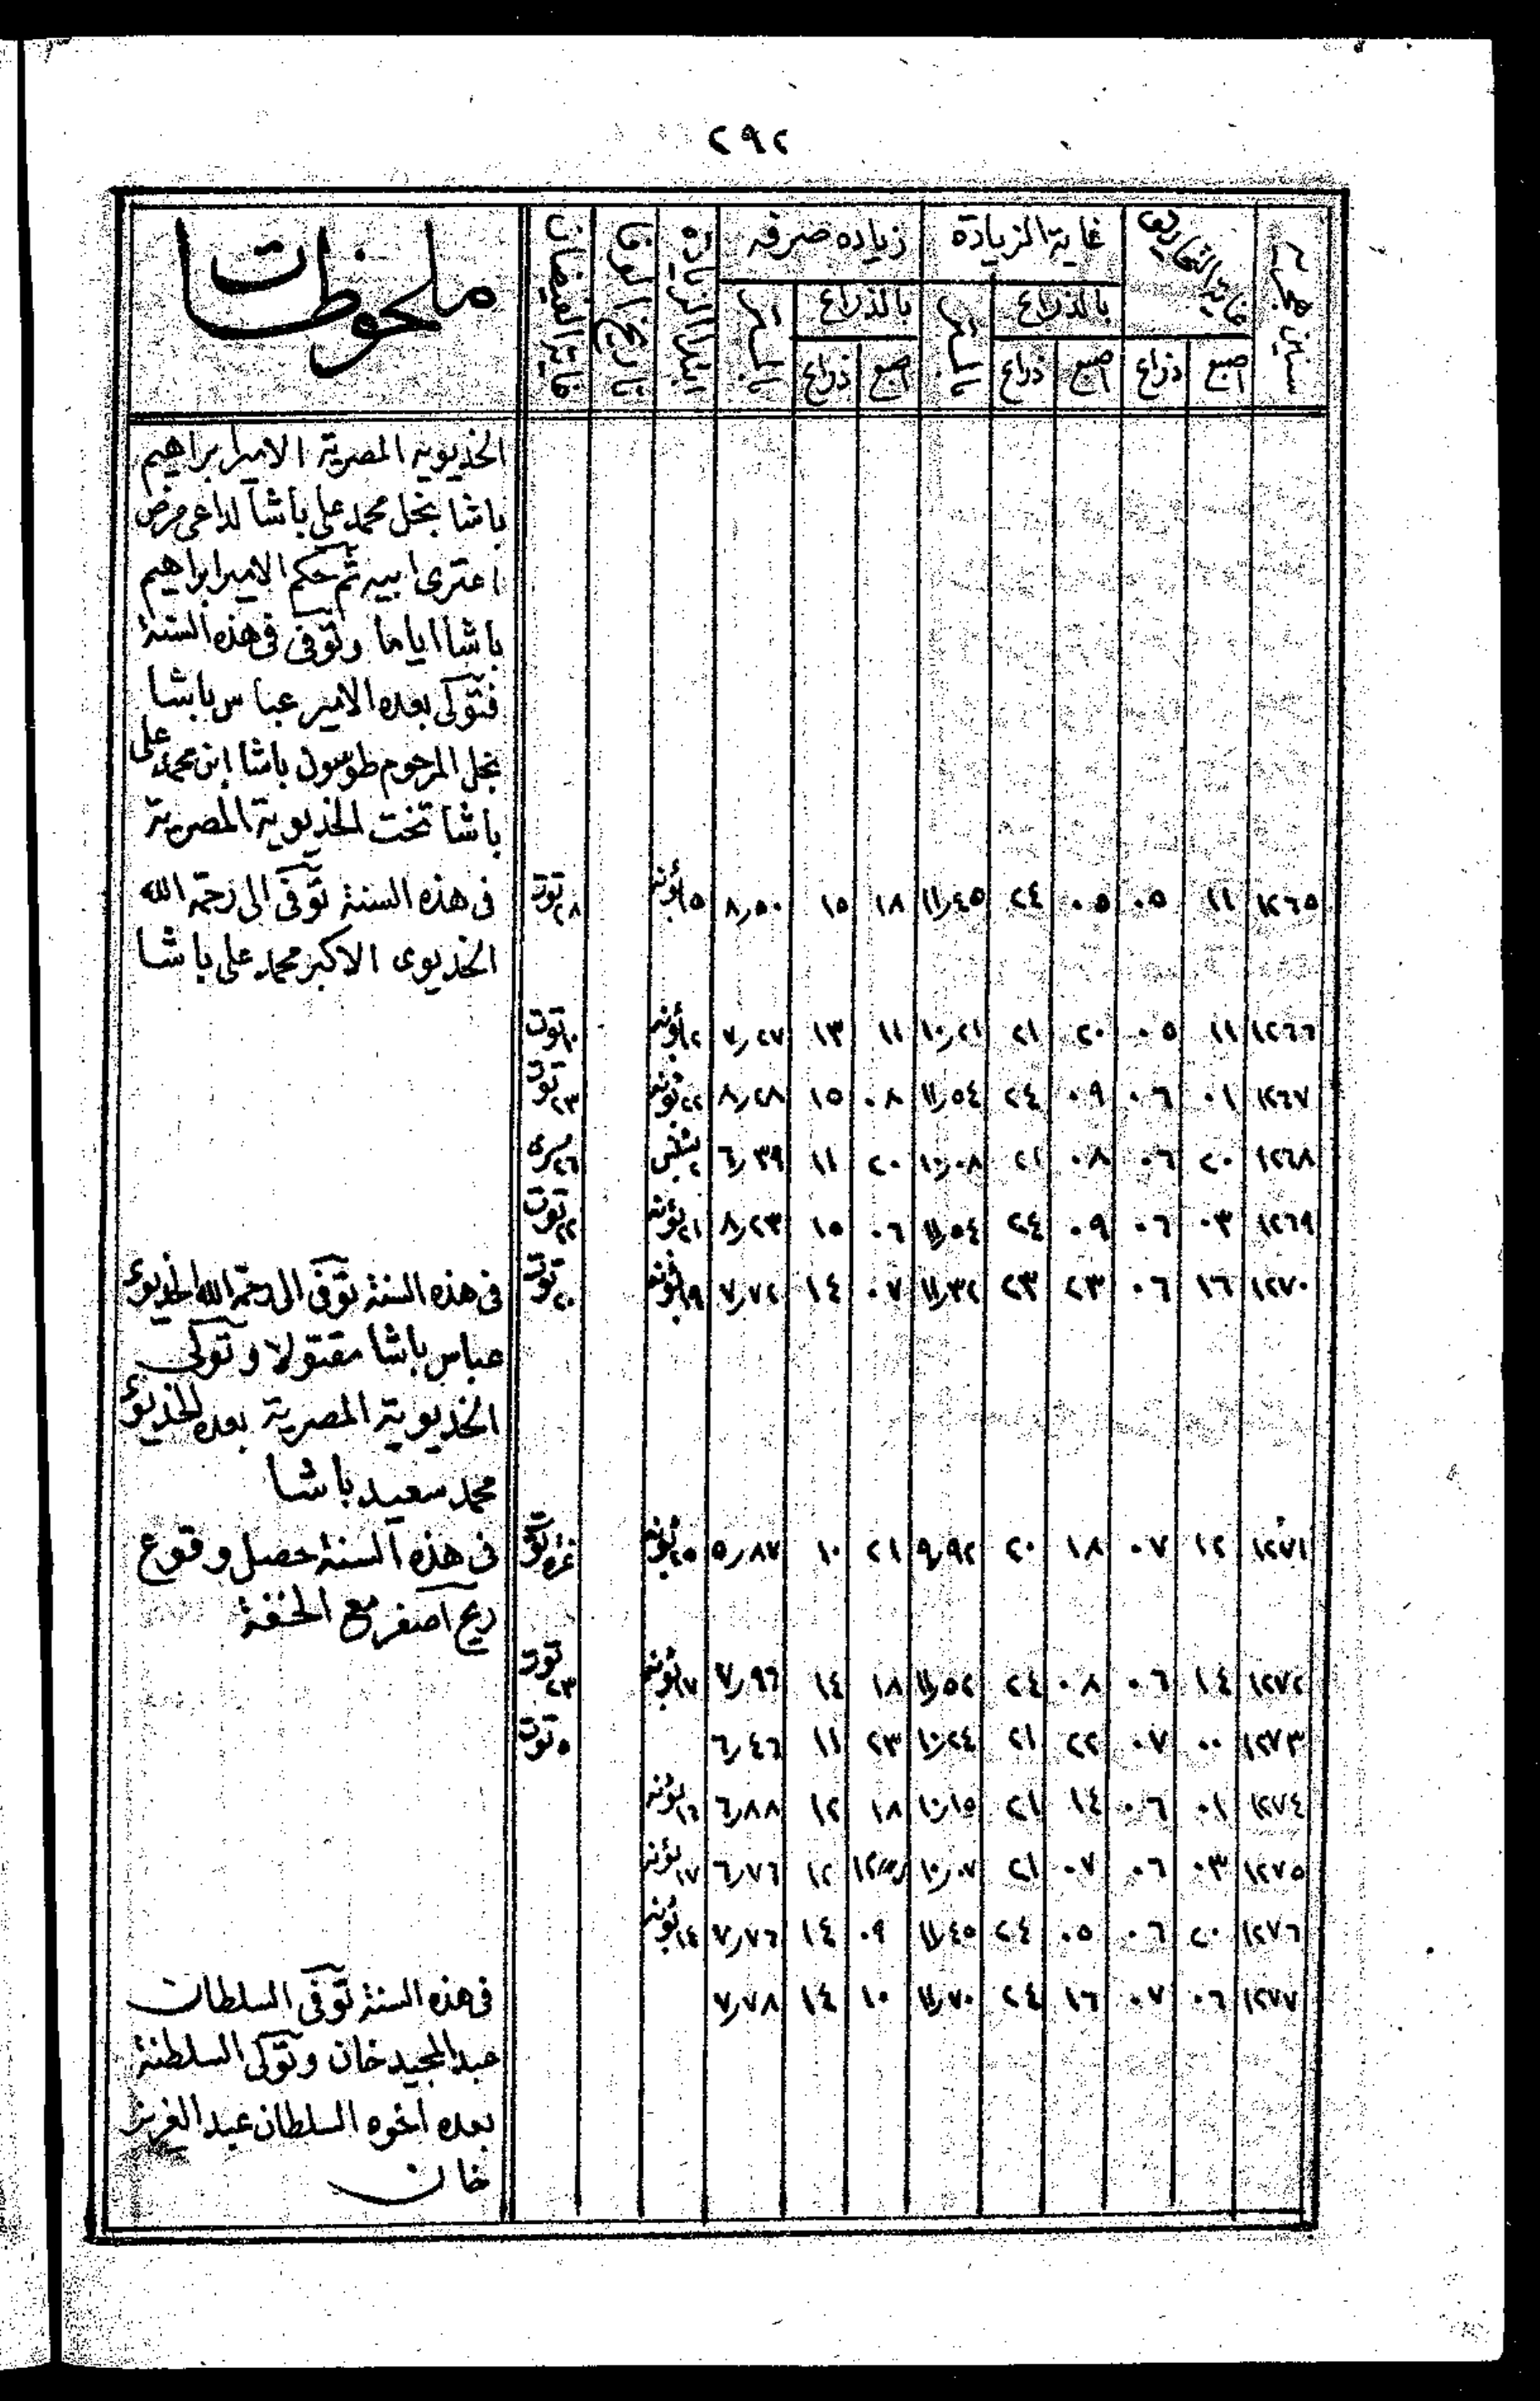 ٢٩٢
سنين هجريه | غاية التحاريق | غاية الزيادة | زياده صرفه | ابتدا الزيادة | تاريخ الوفا | غاية الفيضان | ملحوظات
بالذراع | بالمتر | بالذراع | بالمتر
اصبع | ذراع | اصبع | ذراع | اصبع | ذراع
الخديويه المصرية الامير ابراهيم
باشا نجل محمد على باشا لداعى مرض
اعترى ابيه ثم حكم الامير ابراهيم
باشا اياما وتوفى فى هذه السنة
فتولى بعده الامير عباس باشا
نجل المرحوم طوسون باشا ابن محمد على
باشا تخت الخديوية المصرية
١٢٦٥ | ١١ | ٠٥ | ٠٥ | ٢٤ | ١١,٤٥ | ١٨ | ١٥ | ٨,٥٠ | ٥ بؤنه | ٢٨ توت | فى هذه السنة توفى الى رحمة الله
الخديوى الاكبر محمد على باشا
١٢٦٦ | ١١ | ٠٥ | ٢٠ | ٢١ | ١٠,٢١ | ١١ | ١٣ | ٧,٢٧ | ١٢ بؤنه | ١٠ توت
١٢٦٧ | ٠١ | ٠٦ | ٠٩ | ٢٤ | ١١,٥٤ | ٠٨ | ١٥ | ٨,٢٨ | ٢٢ بؤنه | ٢٣ توت
١٢٦٨ | ٢٠ | ٠٦ | ٠٨ | ٢١ | ١٠,٠٨ | ٢٠ | ١١ | ٦,٣٩ | ٢ بشنس | ٢٦ مسرى
١٢٦٩ | ٠٣ | ٠٦ | ٠٩ | ٢٤ | ١١,٥٤ | ٠٦ | ١٥ | ٨,٢٣ | ٢١ بؤنه | ٢٢ توت
١٢٧٠ | ١٦ | ٠٦ | ٢٣ | ٢٣ | ١١,٣٢ | ٠٧ | ١٤ | ٧,٧٢ | ١٩ بؤنه | ٢٠ توت | فى هذه السنة توفى الى رحمة الله الخديوى
عباس باشا مقتولا وتولى
الخديوية المصرية بعده الخديوى
محمد سعيد باشا
١٢٧١ | ١٢ | ٠٧ | ١٨ | ٢٠ | ٩,٩٢ | ٢١ | ١٠ | ٥,٨٧ | ٢٥ بؤنه | غرة توت | فى هذه السنة حصل وقوع
ريح اصفر مع الخفة
١٢٧٢ | ١٤ | ٠٦ | ٠٨ | ٢٤ | ١١,٥٢ | ١٨ | ١٤ | ٧,٩٦ | ١٧ بؤنه | ٢٣ توت
١٢٧٣ | ٠٠ | ٠٧ | ٢٢ | ٢١ | ١٠,٢٤ | ٢٣ | ١١ | ٦,٤٦ | ٥ توت
١٢٧٤ | ٠١ | ٠٦ | ١٤ | ٢١ | ١٠,١٥ | ١٨ | ١٢ | ٦,٨٨ | ١٦ بؤنه
١٢٧٥ | ٠٣ | ٠٦ | ٠٧ | ٢١ | ١٠,٠٧ | ١٢ | ٦,٧٦ | ١٧ بؤنه
١٢٧٦ | ٢٠ | ٠٦ | ٠٥ | ٢٤ | ١١,٤٥ | ٠٩ | ١٤ | ٧,٧٦ | ١٤ بؤنه
١٢٧٧ | ٠٦ | ٠٧ | ١٦ | ٢٤ | ١١,٧٠ | ١٠ | ١٤ | ٧,٧٨ | فى هذه السنة توفى السلطان
عبد المجيد خان وتولى السلطنة
بعده اخوه السلطان عبد العزيز
خان